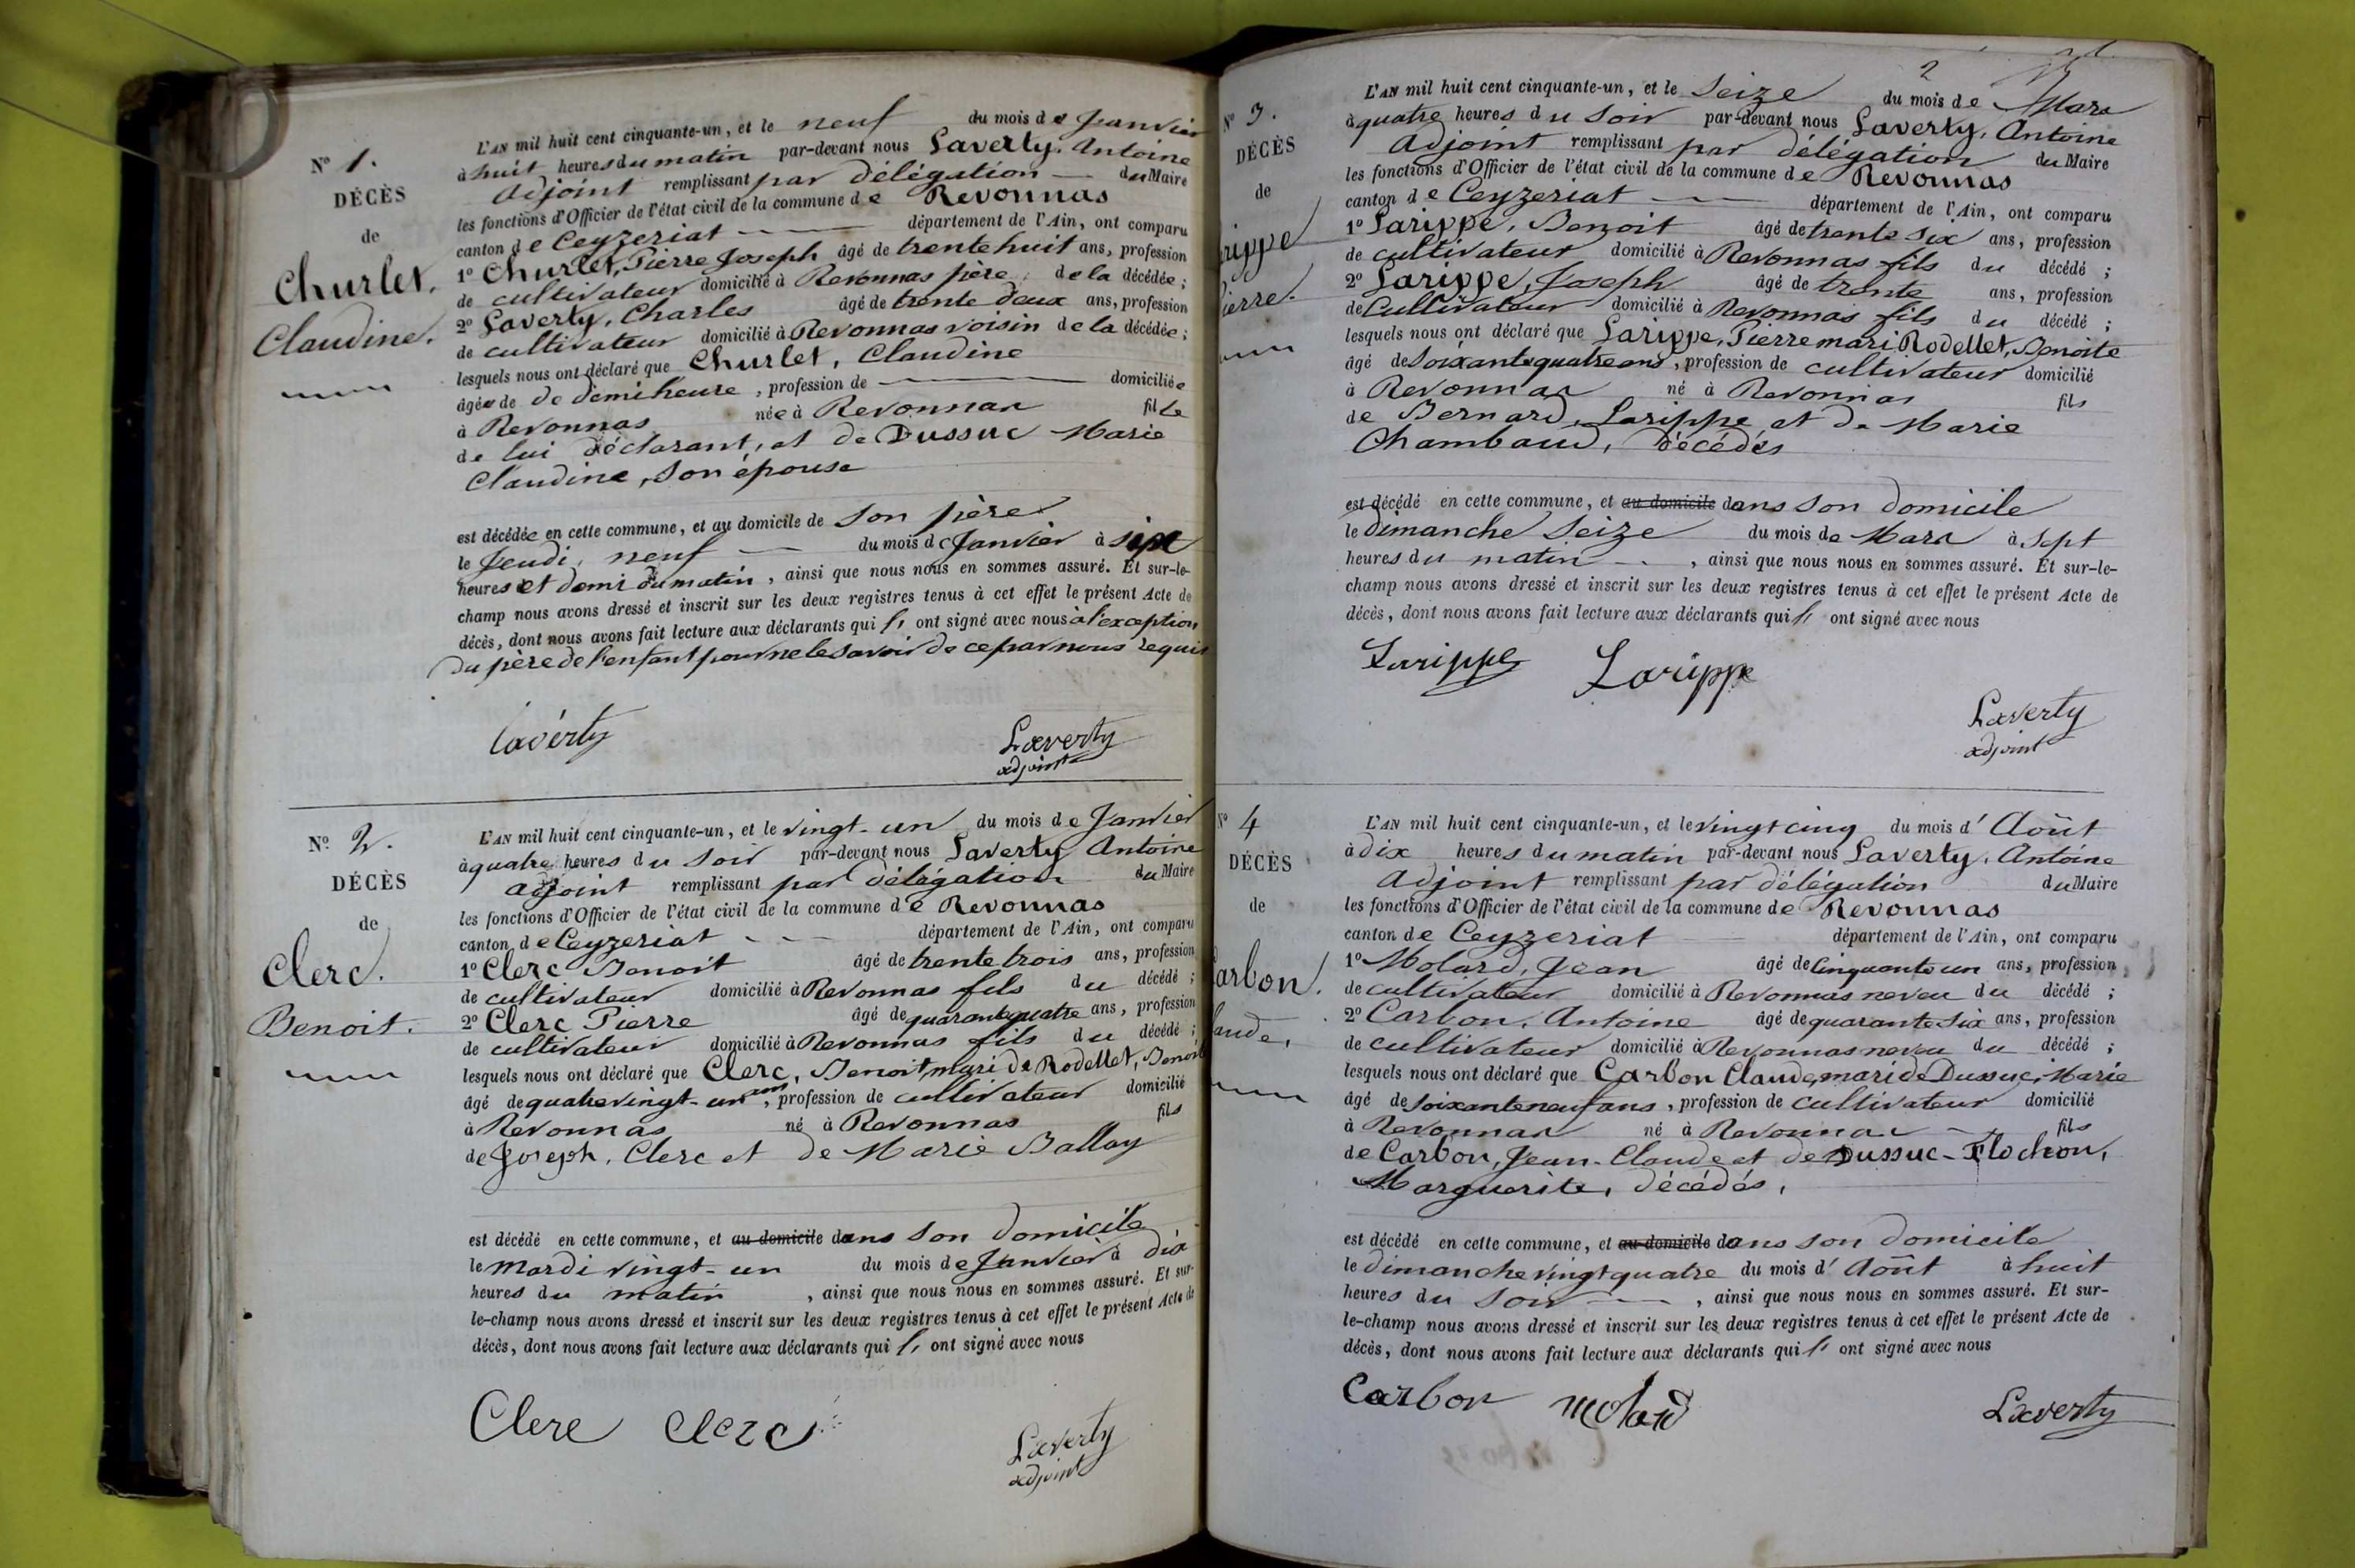 N° 1.
DÉCÈS
de
Churlet.
Claudine.
L'AN mil huit cent cinquante-un, et le neuf du mois de Janvier
à huit heures du matin par-devant nous Laverty, Antoine
adjoint remplissant par délégation du Maire
les fonctions d'Officier de l'état civil de la commune de Revonnas
canton de Ceyzeriat département de l'Ain, ont comparu
1° Churlet, Pierre Joseph âgé de trente huit ans, profession
de cultivateur domicilié à Revonnas père de la décédée ;
2° Laverty, Charles âgé de trente deux ans, profession
de cultivateur domicilié à Revonnas voisin de la décédée ;
lesquels nous ont déclaré que Churlet, Claudine
âgée de de demi heure, profession de domiciliée
à Revonnas née à Revonnas fille
de lui déclarant, et de Dussuc Marie
Claudine, son épouse
est décédée en cette commune, et au domicile de son père
le Jeudi, neuf du mois de Janvier à sept
heures et demi du matin, ainsi que nous nous en sommes assuré. Et sur-le-
champ nous avons dressé et inscrit sur les deux registres tenus à cet effet le présent Acte de
décès, dont nous avons fait lecture aux déclarants qui l' ont signé avec nous à l'exception
du père de l'enfant pour ne le savoir de ce par nous requis
Laverty
Laverty
adjoint
N° 2.
DÉCÈS
de
Clerc.
Benoit.
L'AN mil huit cent cinquante-un, et le vingt-un du mois de Janvier
à quatre heures du soir par-devant nous Laverty Antoine
adjoint remplissant par délégation du Maire
les fonctions d'Officier de l'état civil de la commune de Revonnas
canton de Ceyzeriat département de l'Ain, ont comparu
1° Clerc Benoit âgé de trente trois ans, profession
de cultivateur domicilié à Revonnas fils du décédé ;
2° Clerc Pierre âgé de quarante quatre ans, profession
de cultivateur domicilié à Revonnas fils du décédé ;
lesquels nous ont déclaré que Clerc, Benoit, mari de Rodellet, Benoite
âgé de quatre vingt-un ans, profession de cultivateur domicilié
à Revonnas né à Revonnas fils
de Joseph, Clerc et de Marie Ballay
est décédé en cette commune, et au domicile dans son domicile
le mardi vingt-un du mois de Janvier à dix
heures du matin, ainsi que nous nous en sommes assuré. Et sur-
le-champ nous avons dressé et inscrit sur les deux registres tenus à cet effet le présent Acte de
décès, dont nous avons fait lecture aux déclarants qui l' ont signé avec nous
Clerc Clerc
Laverty
adjoint
2
N° 3.
DÉCÈS
de
rippe
ierre.
L'AN mil huit cent cinquante-un, et le seize du mois de Mars
à quatre heures du soir par-devant nous Laverty, Antoine
adjoint remplissant par délégation du Maire
les fonctions d'Officier de l'état civil de la commune de Revonnas
canton de Ceyzeriat département de l'Ain, ont comparu
1° Larippe, Benoit âgé de trente six ans, profession
de cultivateur domicilié à Revonnas fils du décédé ;
2° Larippe, Joseph âgé de trente ans, profession
de Cultivateur domicilié à Revonnas fils du décédé ;
lesquels nous ont déclaré que Larippe, Pierre mari Rodellet, Benoite
âgé de soixante quatre ans, profession de cultivateur domicilié
à Revonnas né à Revonnas fils
de Bernard, Larippe et de Marie
Chambaud, décédés
est décédé en cette commune, et au domicile dans son domicile
le dimanche seize du mois de Mars à sept
heures du matin, ainsi que nous nous en sommes assuré. Et sur-le-
champ nous avons dressé et inscrit sur les deux registres tenus à cet effet le présent Acte de
décès, dont nous avons fait lecture aux déclarants qui l' ont signé avec nous
Larippe Larippe
Laverty
adjoint
N° 4
DÉCÈS
de
arbon.
laude,
L'AN mil huit cent cinquante-un, et le vingt cinq du mois d'Août
à dix heures du matin par-devant nous Laverty, Antoine
adjoint remplissant par délégation du Maire
les fonctions d'Officier de l'état civil de la commune de Revonnas
canton de Ceyzeriat département de l'Ain, ont comparu
1° Molard, Jean âgé de cinquante un ans, profession
de cultivateur domicilié à Revonnas neveu du décédé ;
2° Carbon, Antoine âgé de quarante six ans, profession
de cultivateur domicilié à Revonnas neveu du décédé ;
lesquels nous ont déclaré que Carbon Claude, mari de Dussuc, Marie
âgé de soixante neuf ans, profession de cultivateur domicilié
à Revonnas né à Revonnas fils
de Carbon, Jean-Claude et de Dussuc-Flochon,
Marguerite, décédés,
est décédé en cette commune, et au domicile dans son domicile
le dimanche vingt quatre du mois d'Août à huit
heures du soir, ainsi que nous nous en sommes assuré. Et sur-
le-champ nous avons dressé et inscrit sur les deux registres tenus à cet effet le présent Acte de
décès, dont nous avons fait lecture aux déclarants qui l' ont signé avec nous
Carbon molard
Laverty